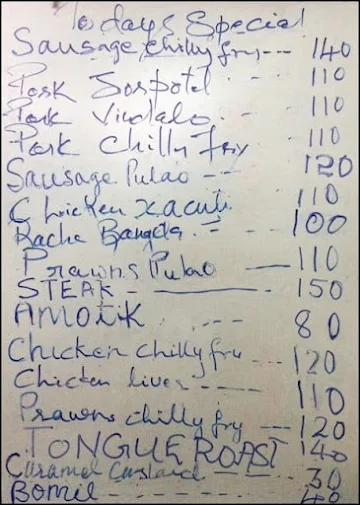 Todays Special
Sausage chilly fry --- 140
Pork Sorpotel - - 110
Pork Vindalo - - 110
Pork Chilly Fry 110
Sausage Pulao -- - 120
Chicken Xacuti 110
Rache Bangda - - 100
Prawns Pulao — 110
STEAK - — 150
AMOTIK --- 80
Chicken chilly fry --- 120
Chicken liver - --- 110
Prawns chilly fry -- 120
TONGUE ROAST 140
Caramel Custard 30
Bomil - - - - - - - 40